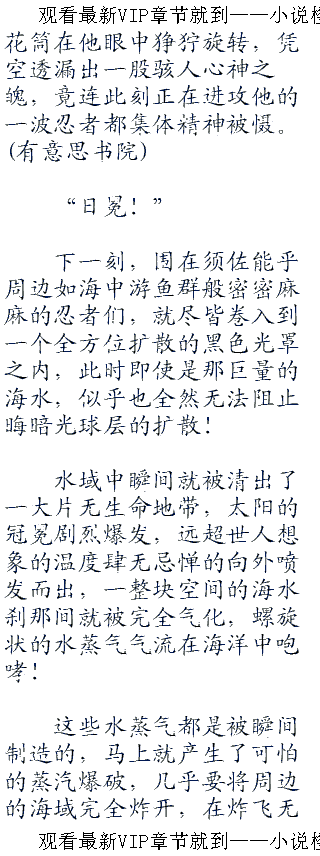 观看最新VIP章节就到——小说
花筒在他眼中狰狞旋转，凭
空透漏出一股骇人心神之
魄，竟连此刻正在进攻他的
一波忍者都集体精神被慑。
(有意思书院)
“日冕！”
下一刻，围在须佐能乎
周边如海中游鱼群般密密麻
麻的忍者们，就尽皆卷入到
一个全方位扩散的黑色光罩
之内，此时即使是那巨量的
海水，似乎也全然无法阻止
晦暗光球层的扩散！
水域中瞬间就被清出了
一大片无生命地带，太阳的
冠冕剧烈爆发，远超世人想
象的温度肆无忌惮的向外喷
发而出，一整块空间的海水
刹那间就被完全气化，螺旋
状的水蒸气气流在海洋中咆
哮！
这些水蒸气都是被瞬间
制造的，马上就产生了可怕
的蒸汽爆破，几乎要将周边
的海域完全炸开，在炸飞无
观看最新VIP章节就到——小说